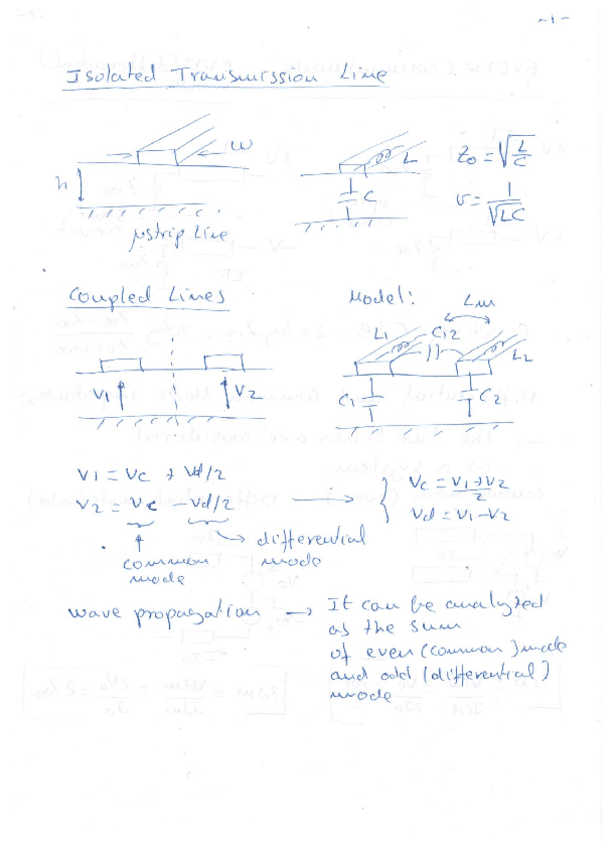 -1-
Isolated Transmission Line
w
h
μstrip Line
L
C
Z0 = √(L/C)
v = 1/√(LC)
Coupled Lines
V1
V2
Model:
Lm
L1
C12
L2
C1
C2
V1 = Vc + Vd/2
V2 = Vc - Vd/2
→ { Vc = (V1+V2)/2
Vd = V1-V2
common
mode
→ differential
mode
wave propagation → It can be analyzed
as the sum
of even (common) mode
and odd (differential)
mode